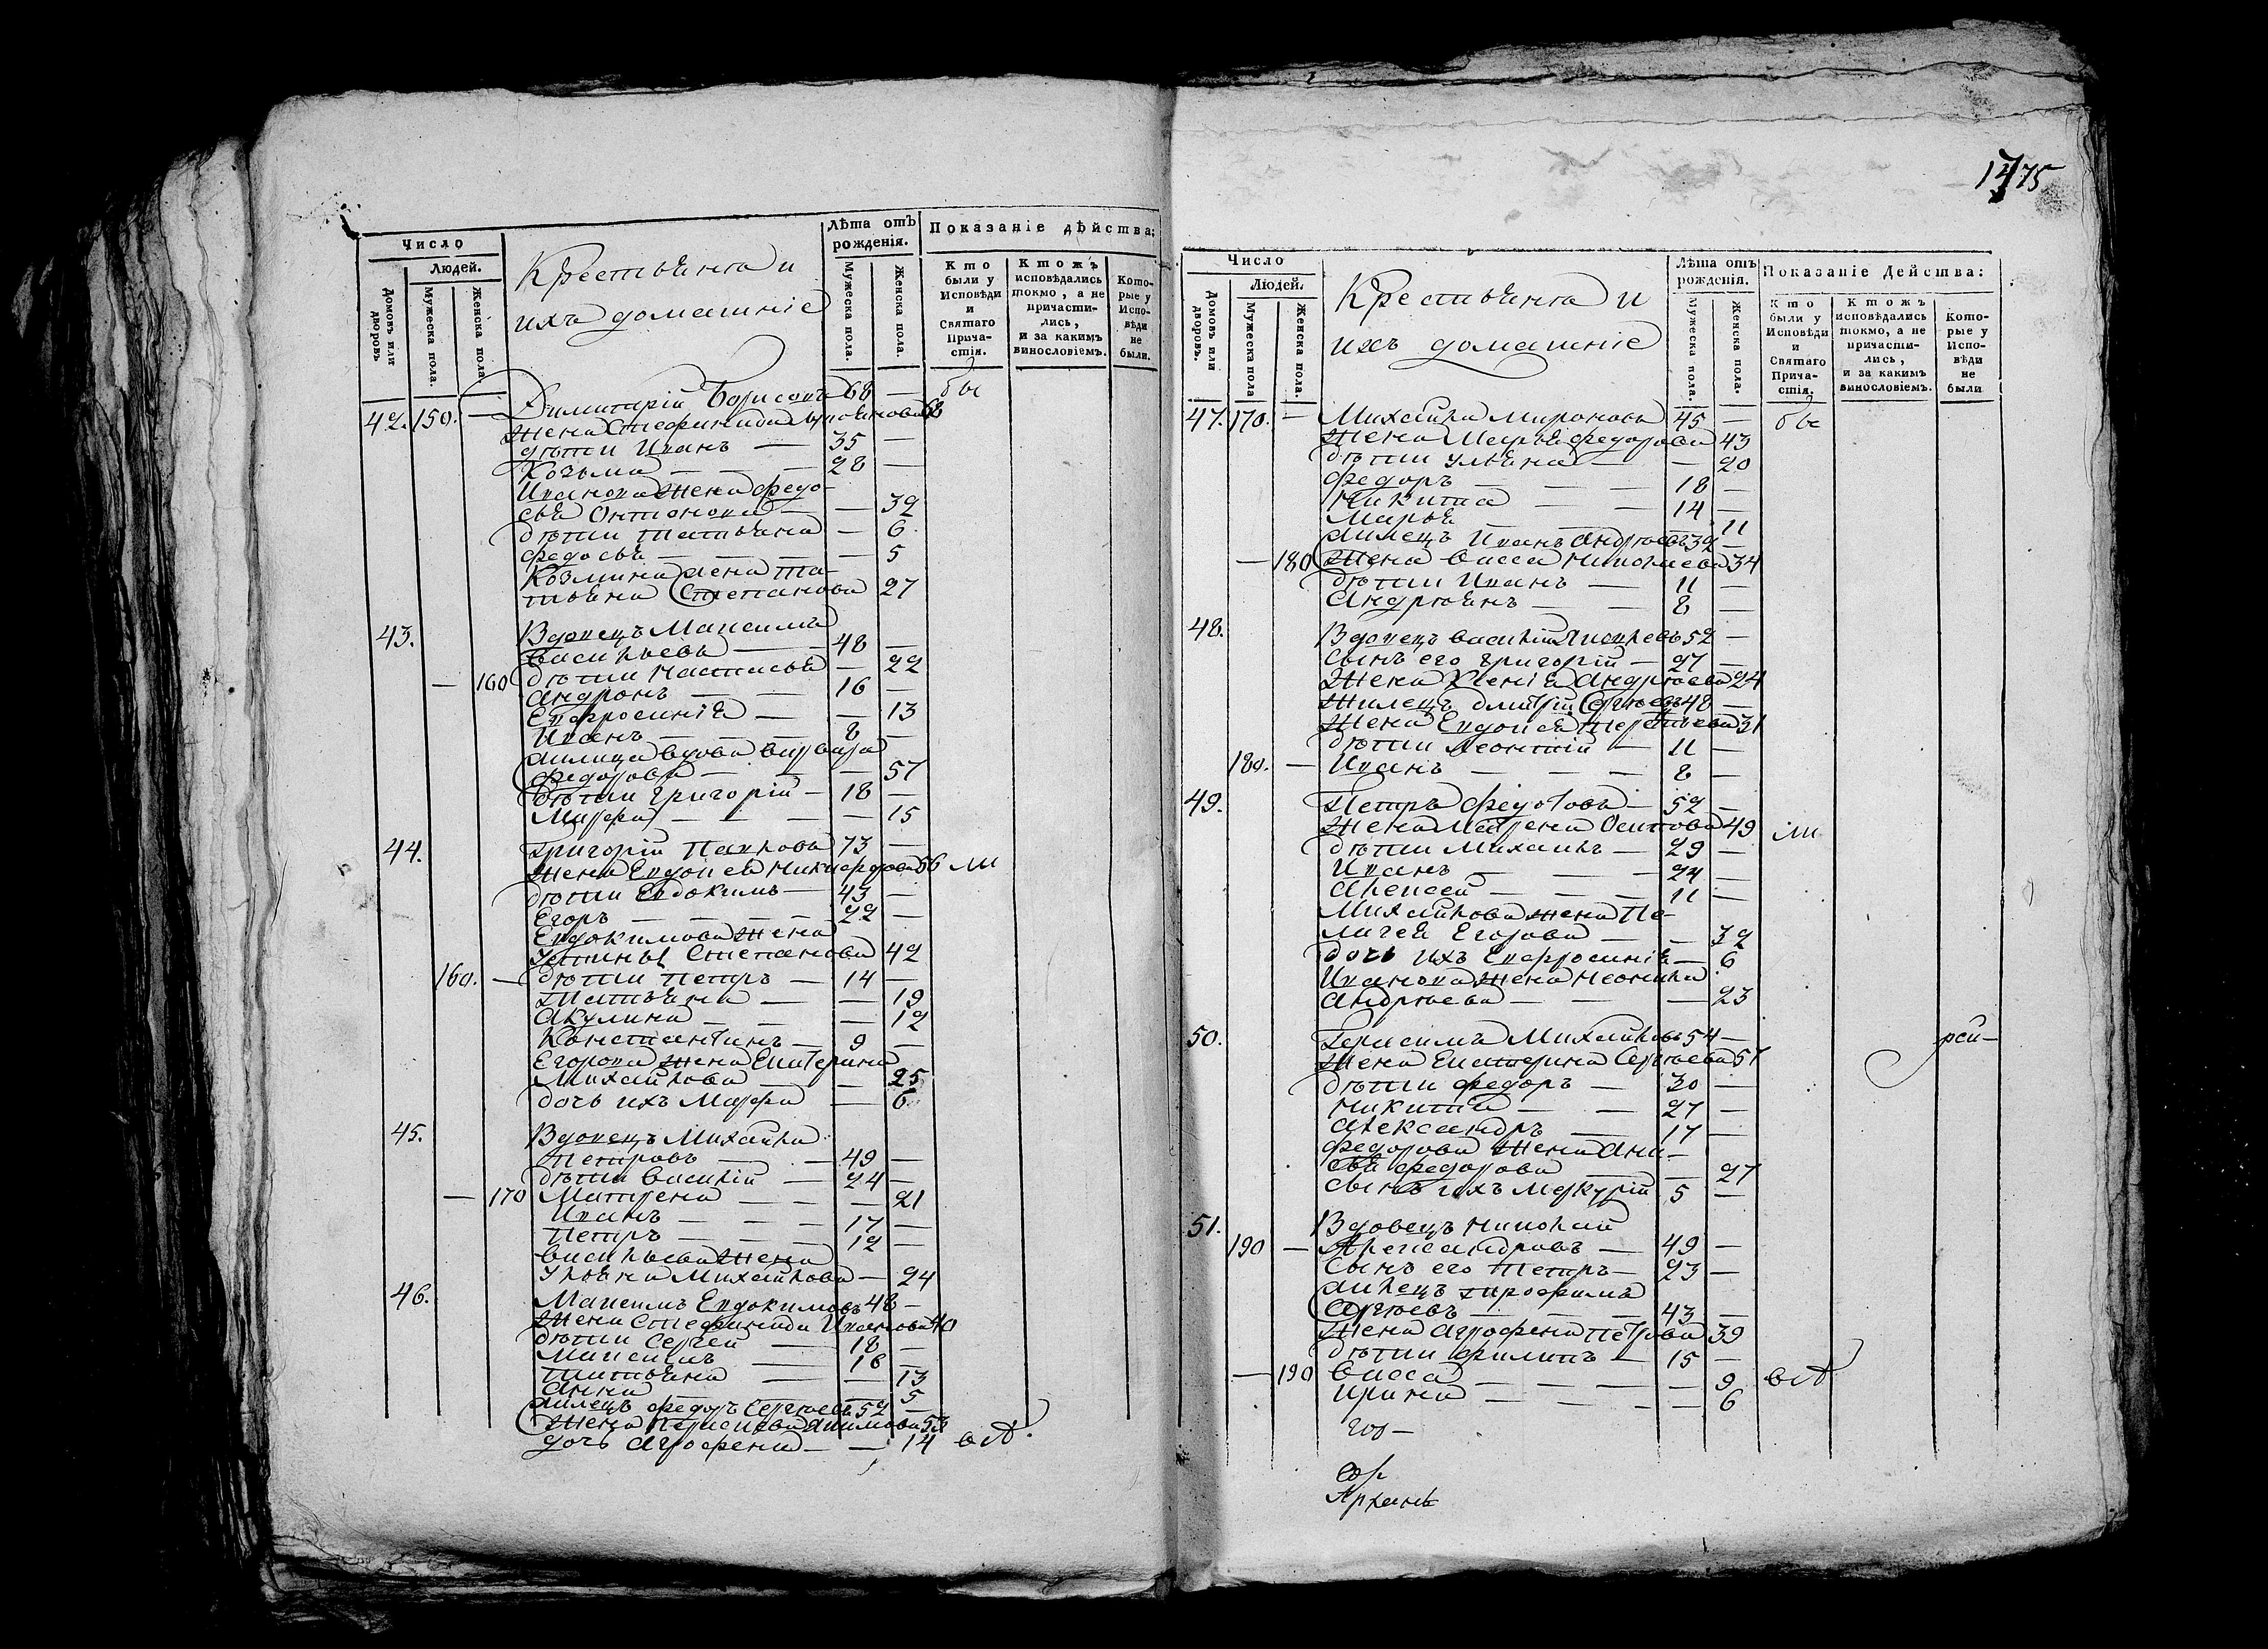 Число
Людей.
Домовъ или дворовъ
Мужеска пола.
Женска пола.
Крестьяна и
ихъ домашніе
Лѣта отъ рожденія.
Мужеска пола.
Женска пола.
Показаніе дѣйства:
Кто были у Исповѣди и Святаго Прича-стія.
Ктожъ исповѣдались токмо, а не причасти-лись, и за какимъ винословіемъ.
Кото-рые у Испо-вѣди не были.
42. 150. — Димитрій Борисовъ 68 — бы
Жена Стефанида 68
дѣти Иванъ — 35 —
Козьма — — — 28 —
Иванова жена Федо-
сья Антонова — — 32
дѣти Татьяна — 6
Федосья — — — — 5
Козмина жена Та-
тьяна Степанова 27
43. Вдовецъ Максимъ
Васильевъ — 48 —
— 160 дѣти Настасья — 22
Андронъ — — 16 —
Евфросинія — — 13
Иванъ — — — 8 —
жилица вдова Варвара
Федорова — — — 57
дѣти Григорій — 18 —
Марфа — — — 15
44. Григорій Павловъ 73 —
Жена Евдокія 66 ли
дѣти Евдокимъ — 43 —
Егоръ — — — 22 —
Евдокимова жена
Устинья Степанова 42
160. — дѣти Петръ — 14 —
Татьяна — — 19
Акулина — — 12
Константинъ — 9 —
Егорова жена Екатерина
Михайлова — — 25
дочь ихъ Марфа — 6
45. Вдовецъ Михайла
Петровъ — — 49 —
дѣти Василій — 24 —
— 170 Матрена — — — 21
Иванъ — — — 17 —
Петръ — — — 12 —
Васильева жена
Ульяна Михайлова — 24
46. Максимъ Евдокимовъ 48 —
Жена Стефанида Иванова 40
дѣти Сергей — 18 —
Максимъ — 16 —
Татьяна — — 13
Анна — — 5
жилецъ Федоръ Сергѣевъ 52 —
Жена 53
дочь Агрофена — — 14
1475
Число
Людей.
Домовъ или дворовъ.
Мужеска пола
Женска пола.
Крестьяна и
ихъ домашніе
Лѣта отъ рожденія.
Мужеска пола.
Женска пола.
Показаніе Действа:
Кто были у Исповѣди и Святаго Прича-стія.
Ктожъ исповѣдались токмо, а не причасти-лись, и за какимъ винословіемъ.
Кото-рые у Испо-вѣди не были
47. 170. — Михайла Мироновъ 45 — бы
Жена Марья Федорова 43
дѣти Ульяна — — 20
Федоръ — — — 18 —
Никита — — 14 —
Марья — — — 11
жилецъ Иванъ Андрѣевъ 32 —
— 180 Жена Васса Николаева 34
дѣти Иванъ — 11 —
Андреянъ — — 8 —
48. Вдовецъ Василій Яковлевъ 52 —
Сынъ его Григорій — 27 —
Жена Ксенія Андрѣева 24
Жилецъ Дмитрій Сергѣевъ 48 —
Жена Евдокія 31
дѣти Леонтій — 11 —
180. — Иванъ — — — 8 —
49. Петръ Федотовъ — 52 —
Жена Матрена Осипова 49 ли
дѣти Михаилъ — 29 —
Иванъ — — — 24 —
Алексей — — — 11 —
Михайлова жена Пе-
лагея Егорова — — 32
дочь ихъ Евфросинія — 6
Иванова жена Неонила
Андрѣева — — — 23
50. Герасимъ Михайловъ 54 —
Жена Екатерина Сергѣева 57
дѣти Федоръ — 30 —
Никита — — 27 —
Александръ — 17 —
Федорова жена Ани-
сья Федорова — — 27
сынъ ихъ Меркурій 5 —
51. Вдовецъ Николай
190 — Александровъ — 49 —
Сынъ его Петръ — 23 —
жилецъ Трофимъ
Сергѣевъ — — — 43 —
Жена Агрофена Петрова 39
дѣти Филипъ — 15 —
— 190 Васса — — — — 9
Ирина — — — — 6